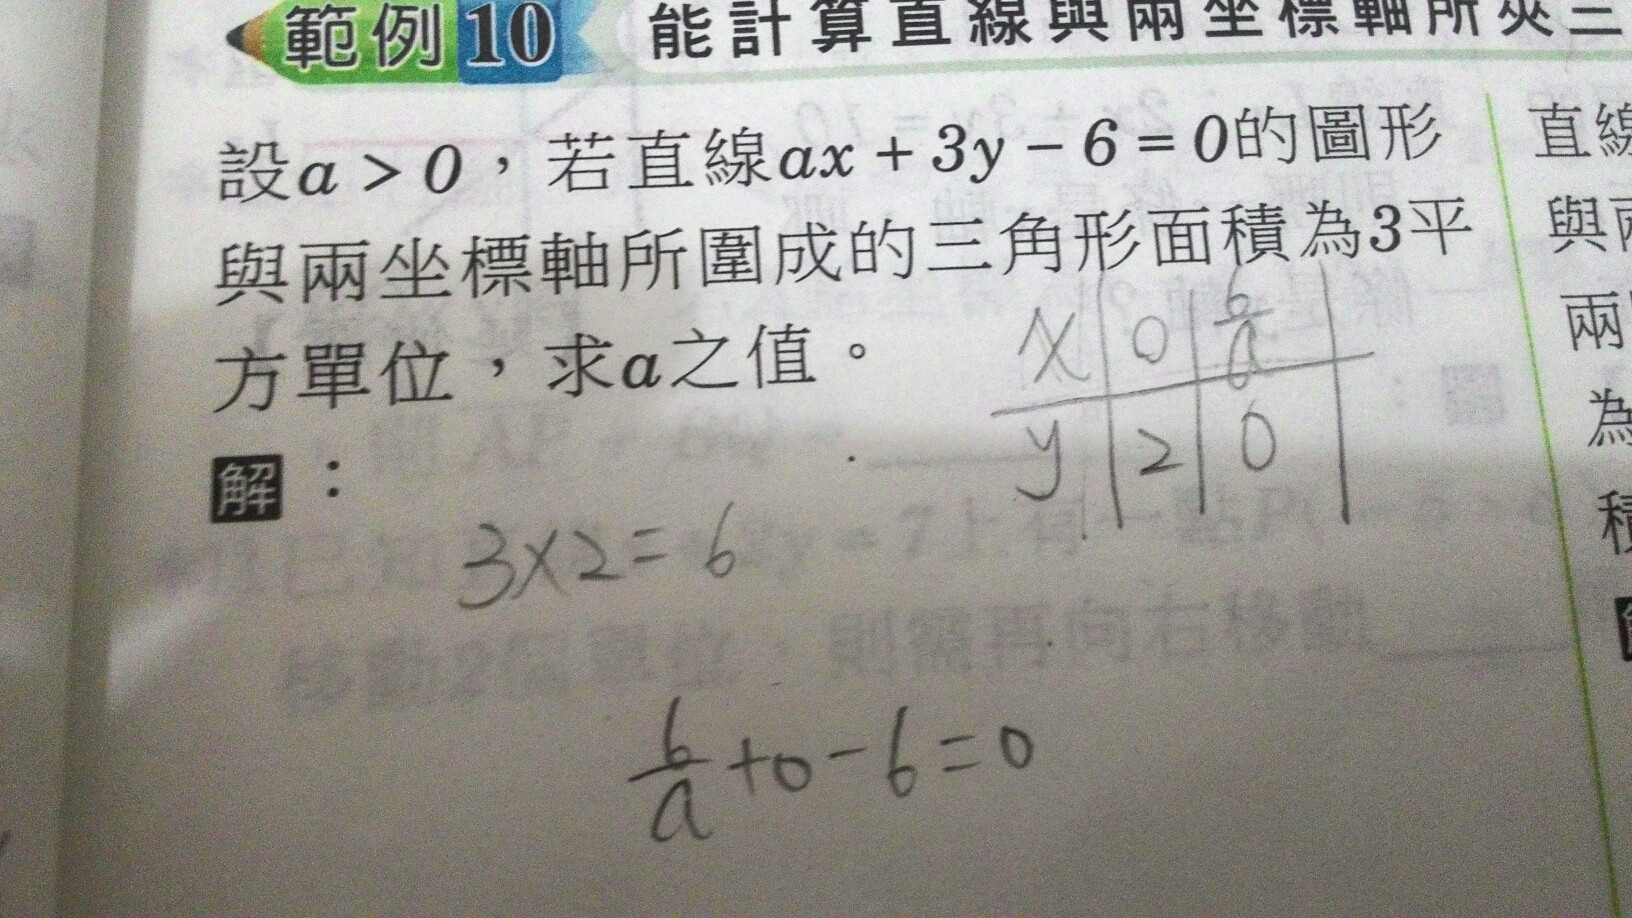 範例10 能計算直線與兩坐標軸所夾三
設a > 0，若直線ax + 3y − 6 = 0的圖形
與兩坐標軸所圍成的三角形面積為3平
方單位，求a之值。
x | 0 | 6/a
y | 2 | 0
解：
3×2=6
6/a+0−6=0
直線
與兩
兩
為
積